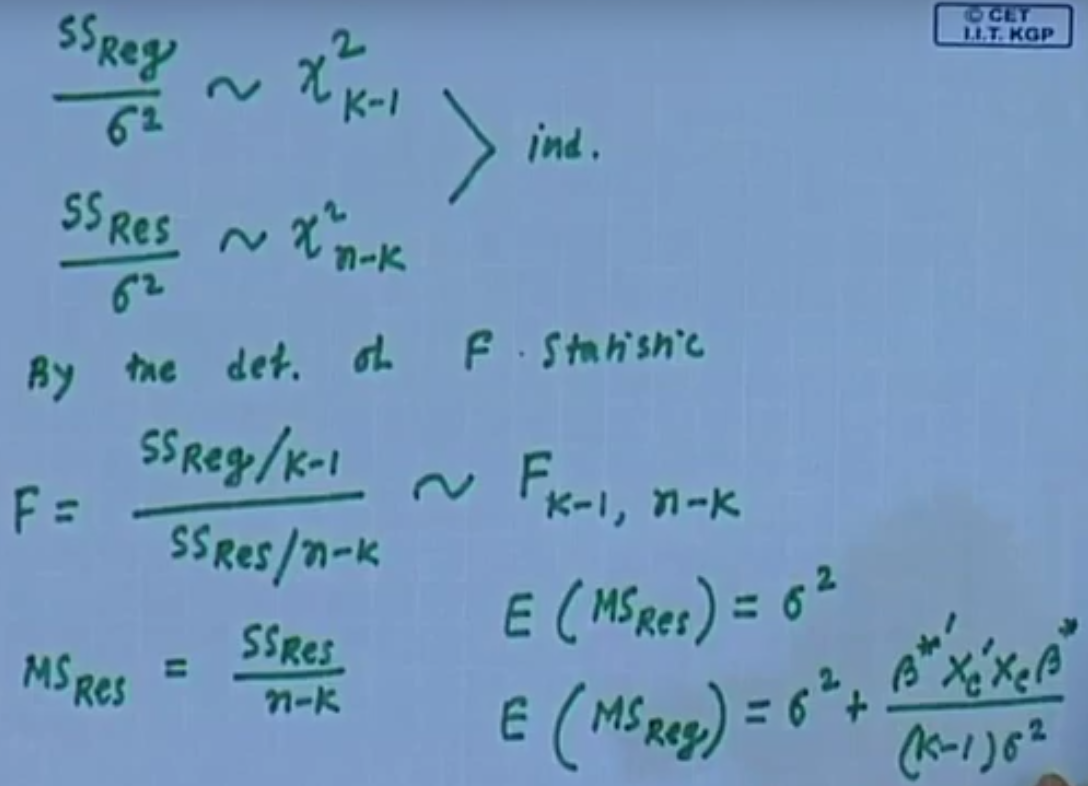 © CET
I.I.T. KGP
SS_Reg / σ² ~ χ²_{K-1}
> ind.
SS_Res / σ² ~ χ²_{n-K}
By the def. of F. Statistic
F = (SS_Reg/K-1) / (SS_Res/n-K) ~ F_{K-1, n-K}
E (MS_Res) = σ²
MS_Res = SS_Res / n-K
E (MS_Reg) = σ² + β*' X_c' X_c β* / (K-1)σ²